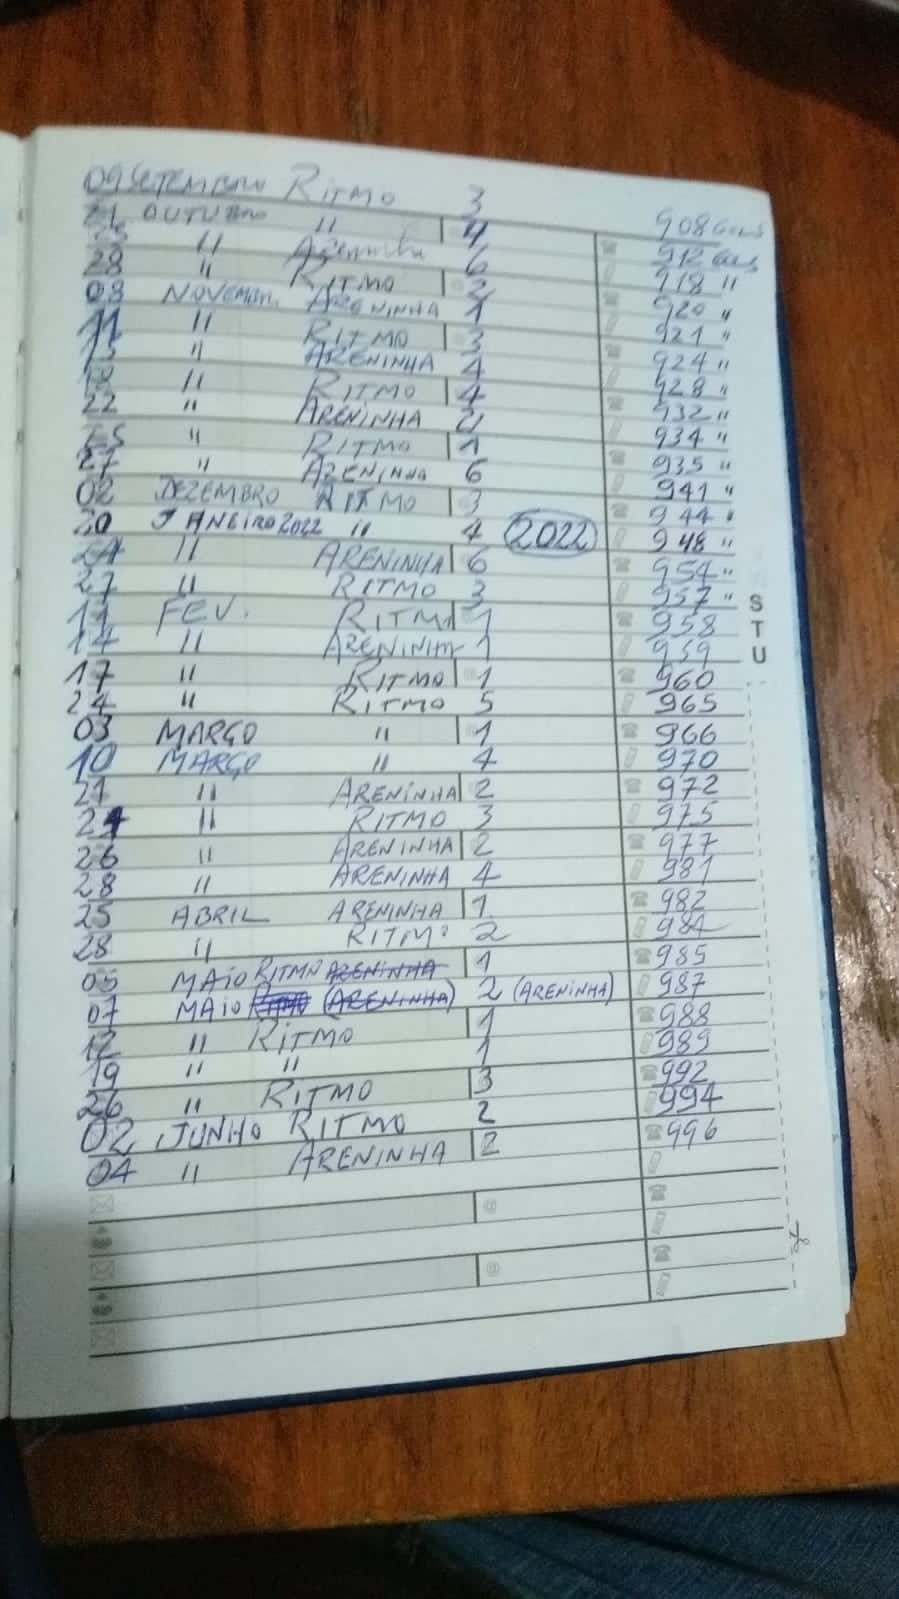 09 SETEMBRO RITMO 3 908 GOLS
21 OUTUBRO 11 4 912 GOLS
11 Areninha 6 918 "
28 " RITMO 2 920 "
08 NOVEMBRO ARENINHA 1 921 "
11 11 RITMO 3 924 "
15 " ARENINHA 4 928 "
18 11 RITMO 4 932 "
22 " ARENINHA 2 934 "
25 " RITMO 1 935 "
27 " ARENINHA 6 941 "
02 DEZEMBRO RITMO 3 944 "
20 JANEIRO 2022 " 4 2022 948 "
24 11 ARENINHA 6 954 "
27 11 RITMO 3 957 "
11 FEV. RITMO 1 958
14 11 ARENINHA 1 959
17 " RITMO 1 960
24 " RITMO 5 965
03 MARÇO " 1 966
10 MARÇO " 4 970
21 11 ARENINHA 2 972
24 11 RITMO 3 975
26 11 ARENINHA 2 977
28 11 ARENINHA 4 981
25 ABRIL ARENINHA 1 982
28 11 RITMO 2 984
05 MAIO RITMO ARENINHA 1 985
07 MAIO RITMO (ARENINHA) 2 (ARENINHA) 987
12 11 RITMO 1 988
19 11 11 1 989
26 11 RITMO 3 992
02 JUNHO RITMO 2 994
04 11 ARENINHA 2 996
S
T
U